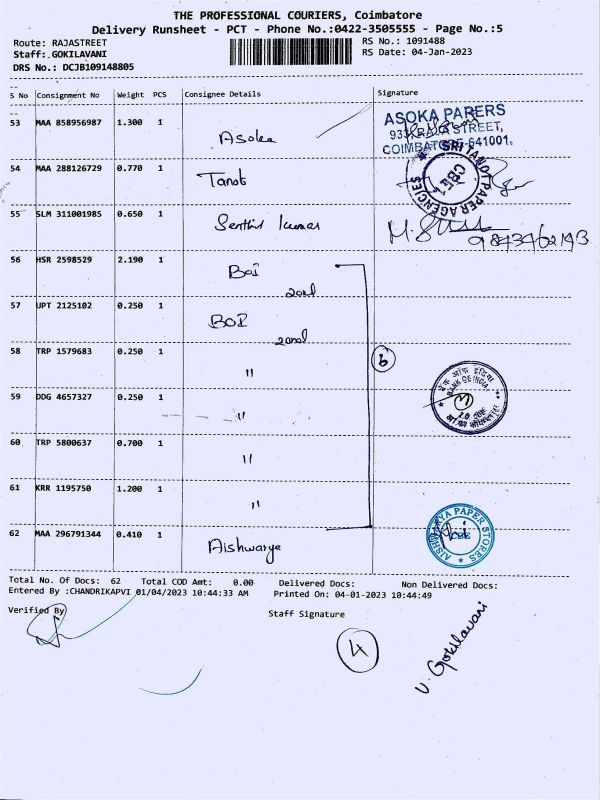 THE PROFESSIONAL COURIERS, Coimbatore
Delivery Runsheet - PCT - Phone No.:0422-3505555 - Page No.:5
Route: RAJASTREET
RS No.: 1091488
Staff: GOKILAVANI
RS Date: 04-Jan-2023
DRS No.: DCJB109148805
S No Consignment No Weight PCS Consignee Details Signature
53 MAA 858956987 1.300 1 Asoka
ASOKA PAPERS
RAJA STREET,
COIMBATORE-641001.
54 MAA 288126729 0.770 1 Tanot
SRI TANOT PAPER AGENCIES
CBE-1
55 SLM 311001985 0.650 1 Senthil Kumar
9843962193
56 HSR 2598529 2.190 1 BOI
2and
57 UPT 2125102 0.250 1 BOI
2and
58 TRP 1579683 0.250 1 "
6
59 DDG 4657327 0.250 1 "
बैंक ऑफ इंडिया
BANK OF INDIA
60 TRP 5800637 0.700 1 "
61 KRR 1195750 1.200 1 "
62 MAA 296791344 0.410 1 Aishwarya
AISHWARYA PAPER STORES
CBE
Total No. Of Docs: 62 Total COD Amt: 0.00 Delivered Docs: Non Delivered Docs:
Entered By :CHANDRIKAPVI 01/04/2023 10:44:33 AM Printed On: 04-01-2023 10:44:49
Verified By
Staff Signature
4
V. Gokilavani